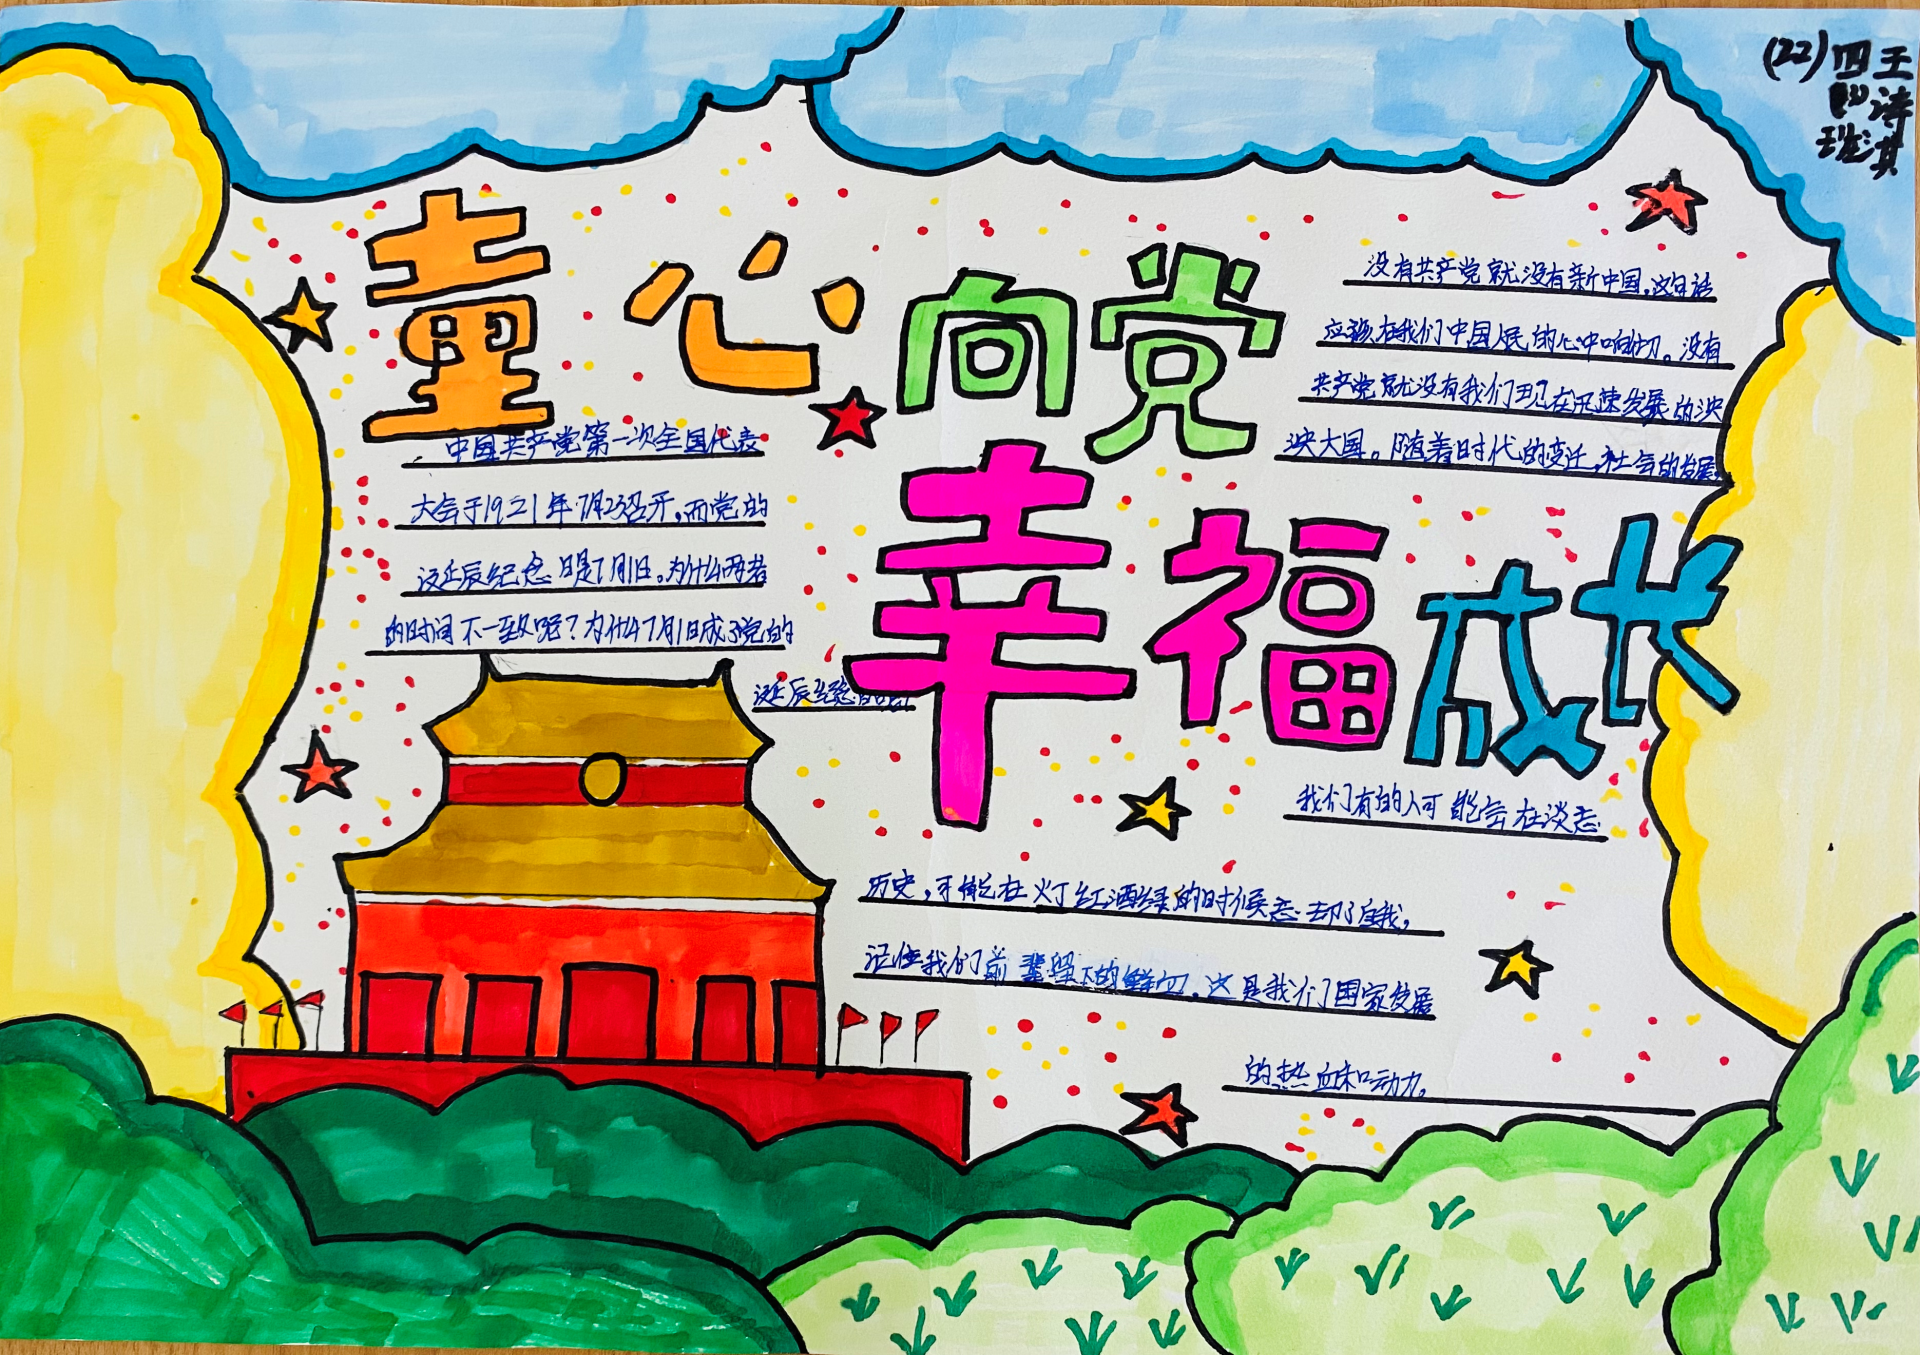 (22) 四(4)班 王诗淇
童心向党
幸福成长
中国共产党第一次全国代表
大会于1921年7月23召开,而党的
诞辰纪念日是7月1日。为什么两者
的时间不一致呢?为什么7月1日成了党的
诞辰纪念的
没有共产党就没有新中国,这句话
应该在我们中国人民的心中响切。没有
共产党就没有我们现在迅速发展的泱
泱大国。随着时代的变迁,社会的发展,
我们有的人可能会在淡忘
历史,不能在灯红酒绿的时候忘却了自我,
记住我们前辈留下的鲜切,这是我们国家发展
的热血和动力。